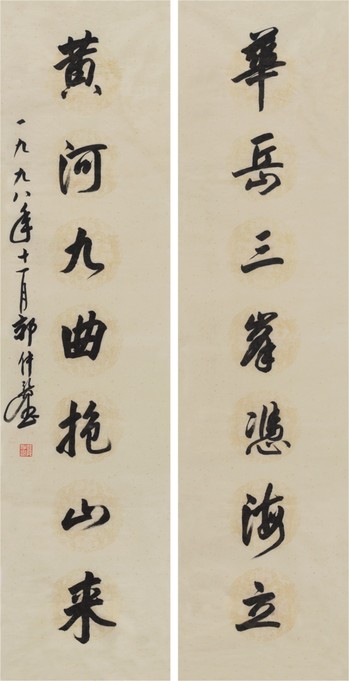 華岳三峯憑海立
黄河九曲抱山来
一九九八年十一月郭仲選